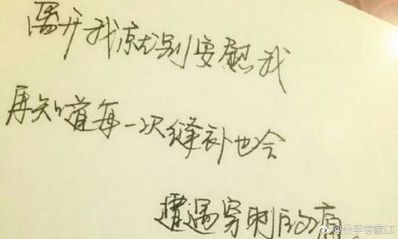 离开我就别安慰我
要知道每一次缝补也会
遭遇穿刺的痛。
@分手管家LT